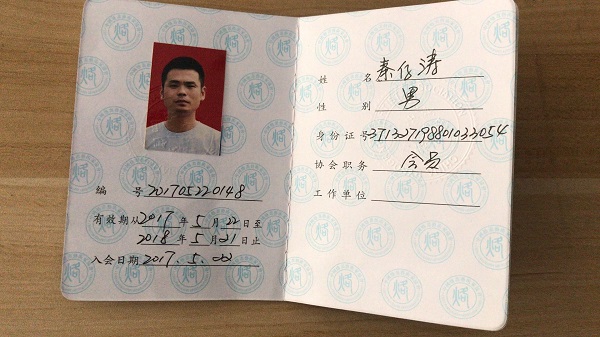 编 号 201705220148
有效期从 2017 年 5 月 22 日至
2018 年 5 月 21 日止
入会日期 2017.5.22
姓 名 秦仔涛
性 别 男
身份证号
协会职务 会员
工作单位